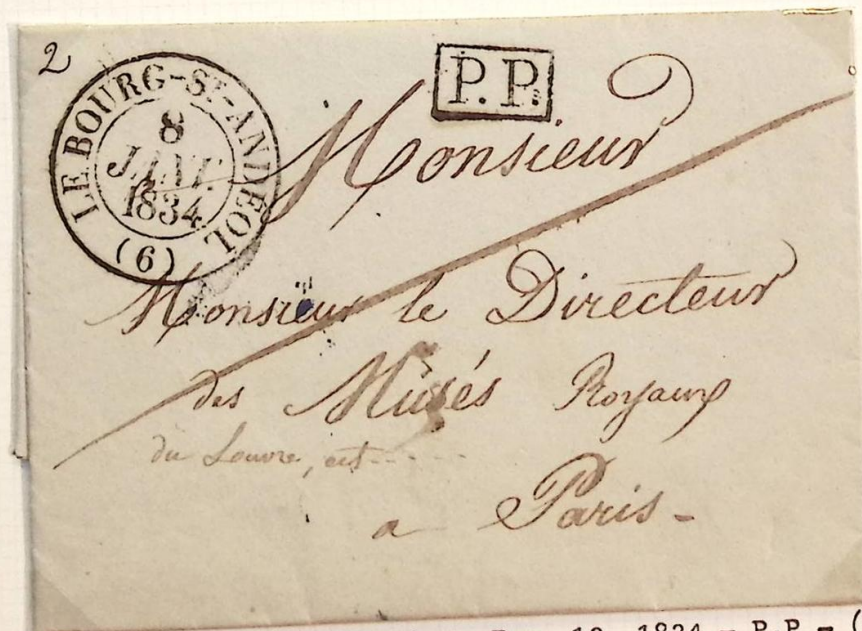 2
LE BOURG-ST-ANDÉOL
8
JANV.
1834
(6)
P.P.
Monsieur
Monsieur le Directeur
des Musés Royaux
du Louvre,
a Paris-
1834 - P.P - (